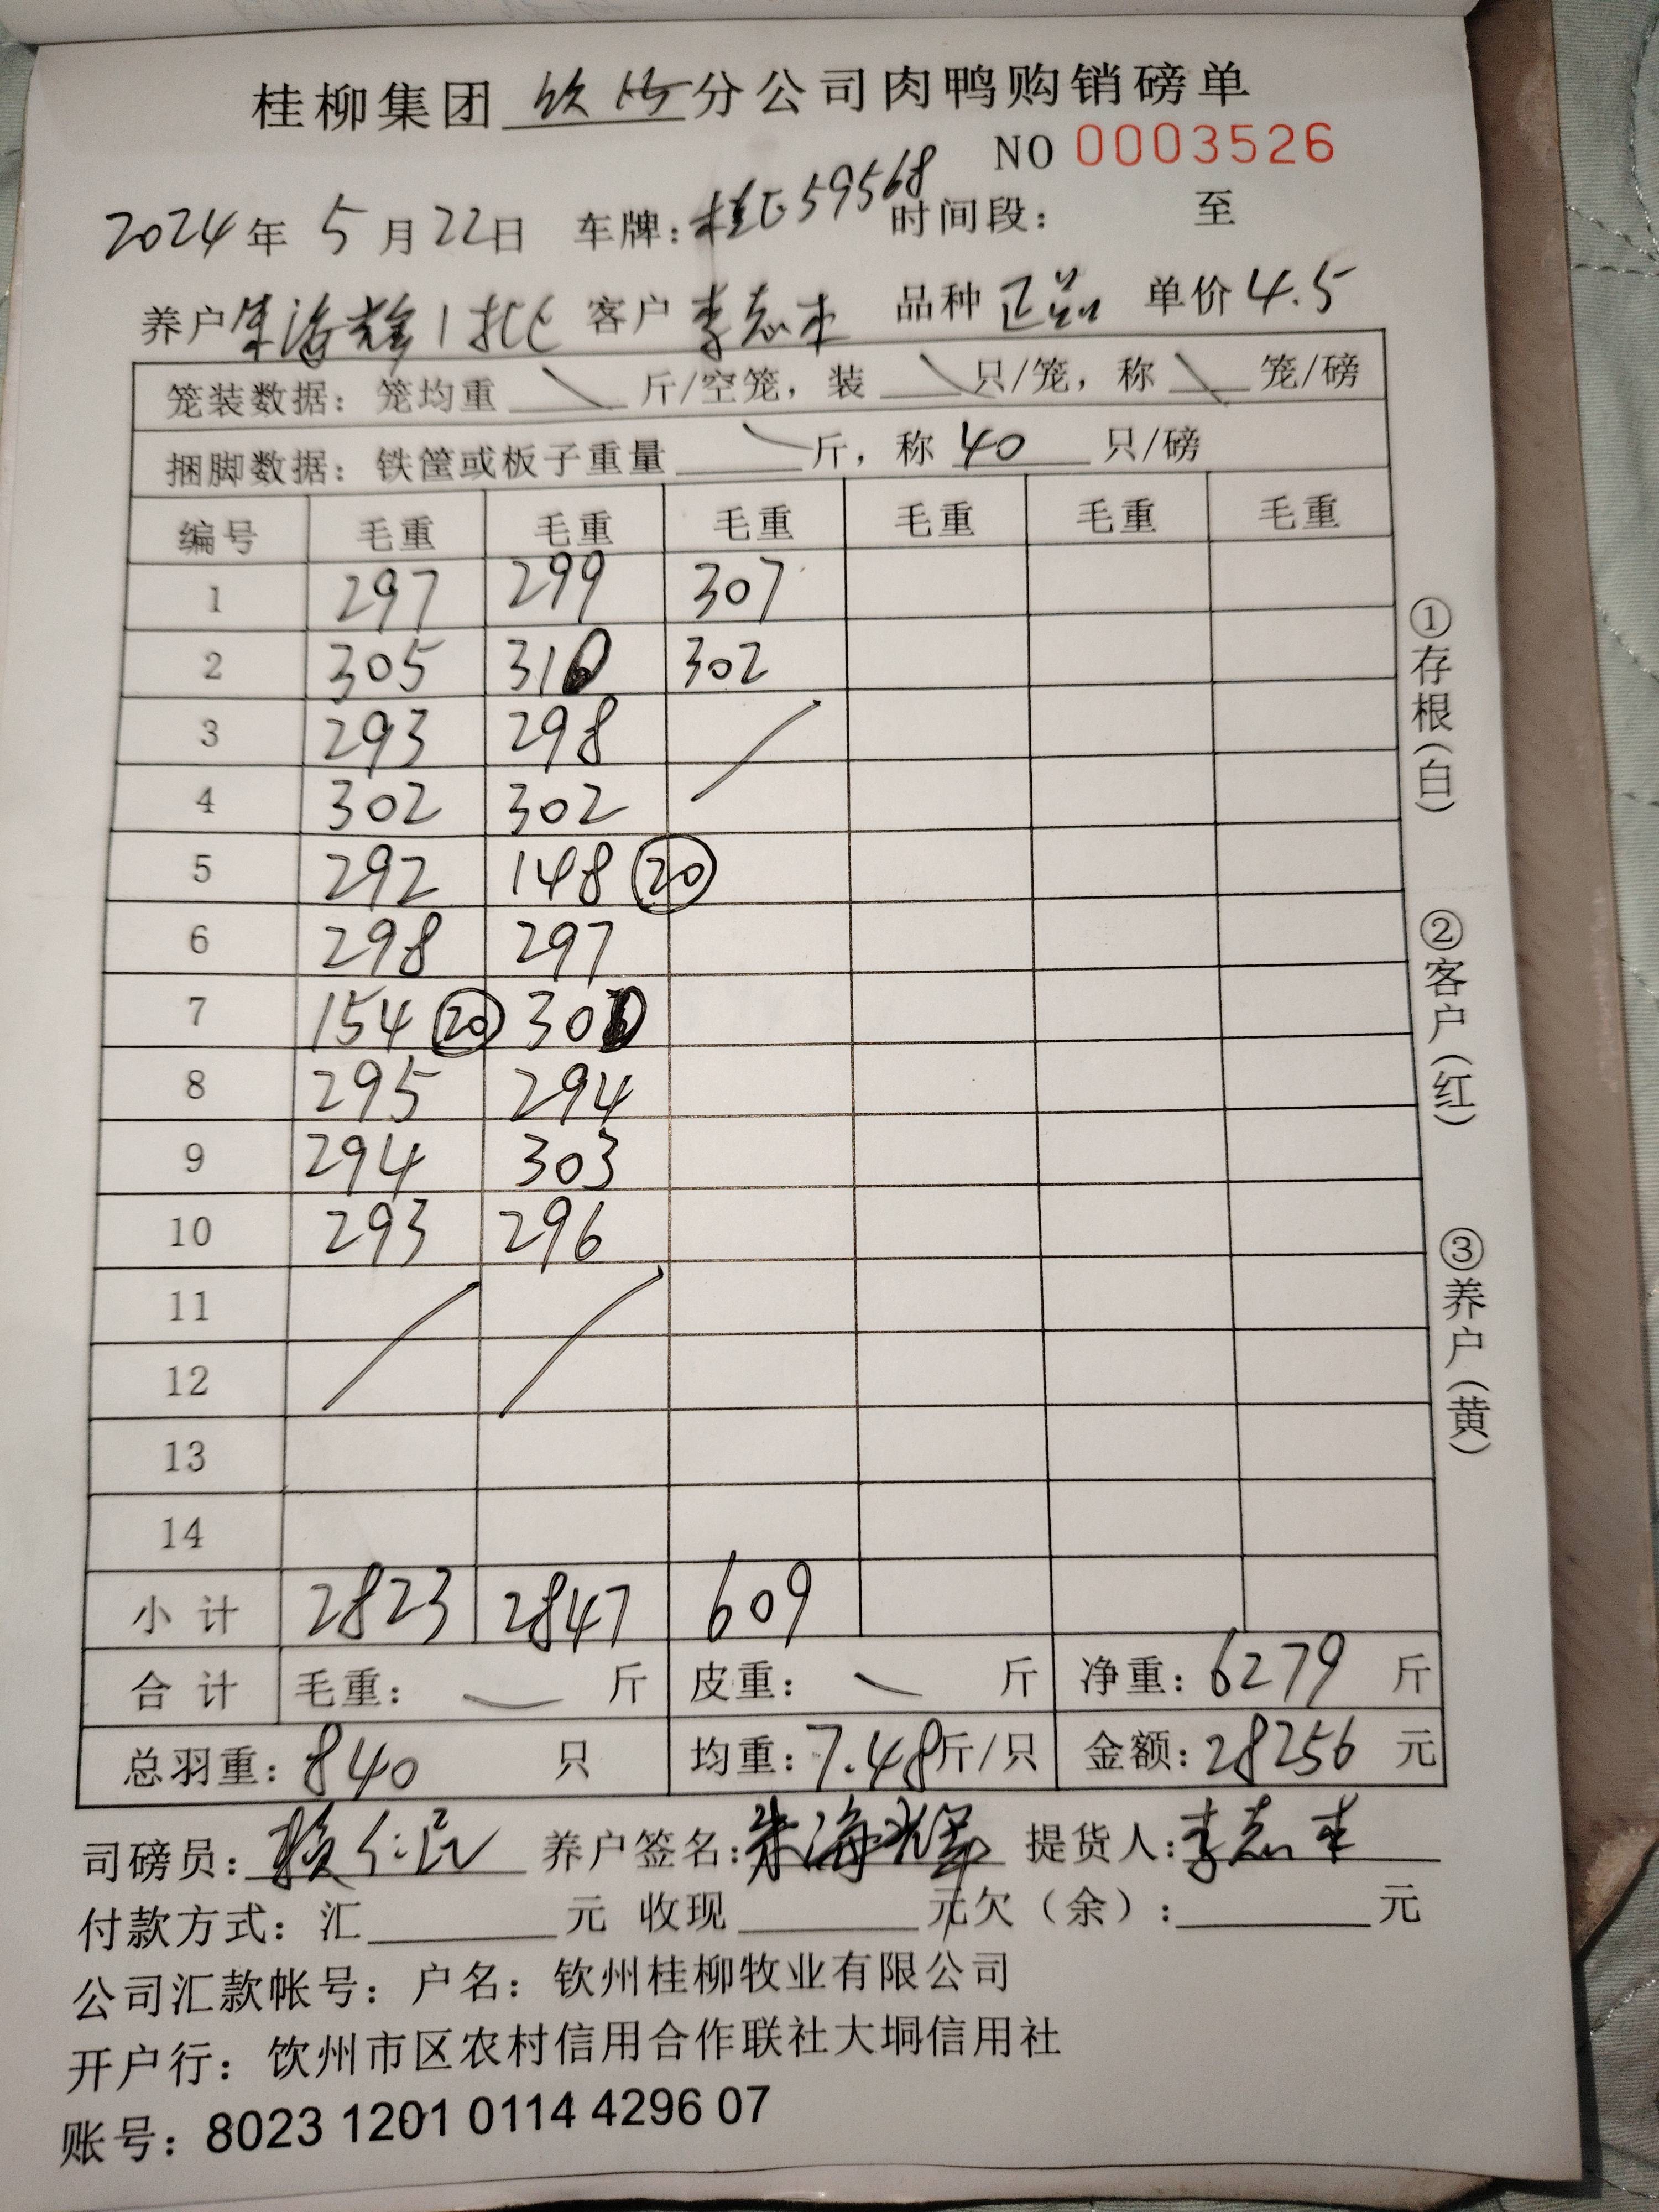 桂柳集团 钦州 分公司肉鸭购销磅单
NO 0003526
2024 年 5 月 22 日 车牌: 桂E59568 时间段: 至
养户 朱海辉1批 客户 李志 品种 正品 单价 4.5
笼装数据: 笼均重 \ 斤/空笼, 装 \ 只/笼, 称 \ 笼/磅
捆脚数据: 铁筐或板子重量 \ 斤, 称 40 只/磅
编号 毛重 毛重 毛重 毛重 毛重 毛重
1 297 299 307
2 305 310 302
3 293 298
4 302 302
5 292 148 ⑳
6 298 297
7 154 ⑳ 300
8 295 294
9 294 303
10 293 296
11
12
13
14
小 计 2823 2847 609
合 计 毛重: \ 斤 皮重: \ 斤 净重: 6279 斤
总羽重: 840 只 均重: 7.48 斤/只 金额: 28256 元
司磅员: 赖仁 养户签名: 朱海辉 提货人: 李志
付款方式: 汇 元 收现 元 欠（余）: 元
公司汇款帐号: 户名: 钦州桂柳牧业有限公司
开户行: 饮州市区农村信用合作联社大垌信用社
账号: 8023 1201 0114 4296 07
①存根(白)
②客户(红)
③养户(黄)